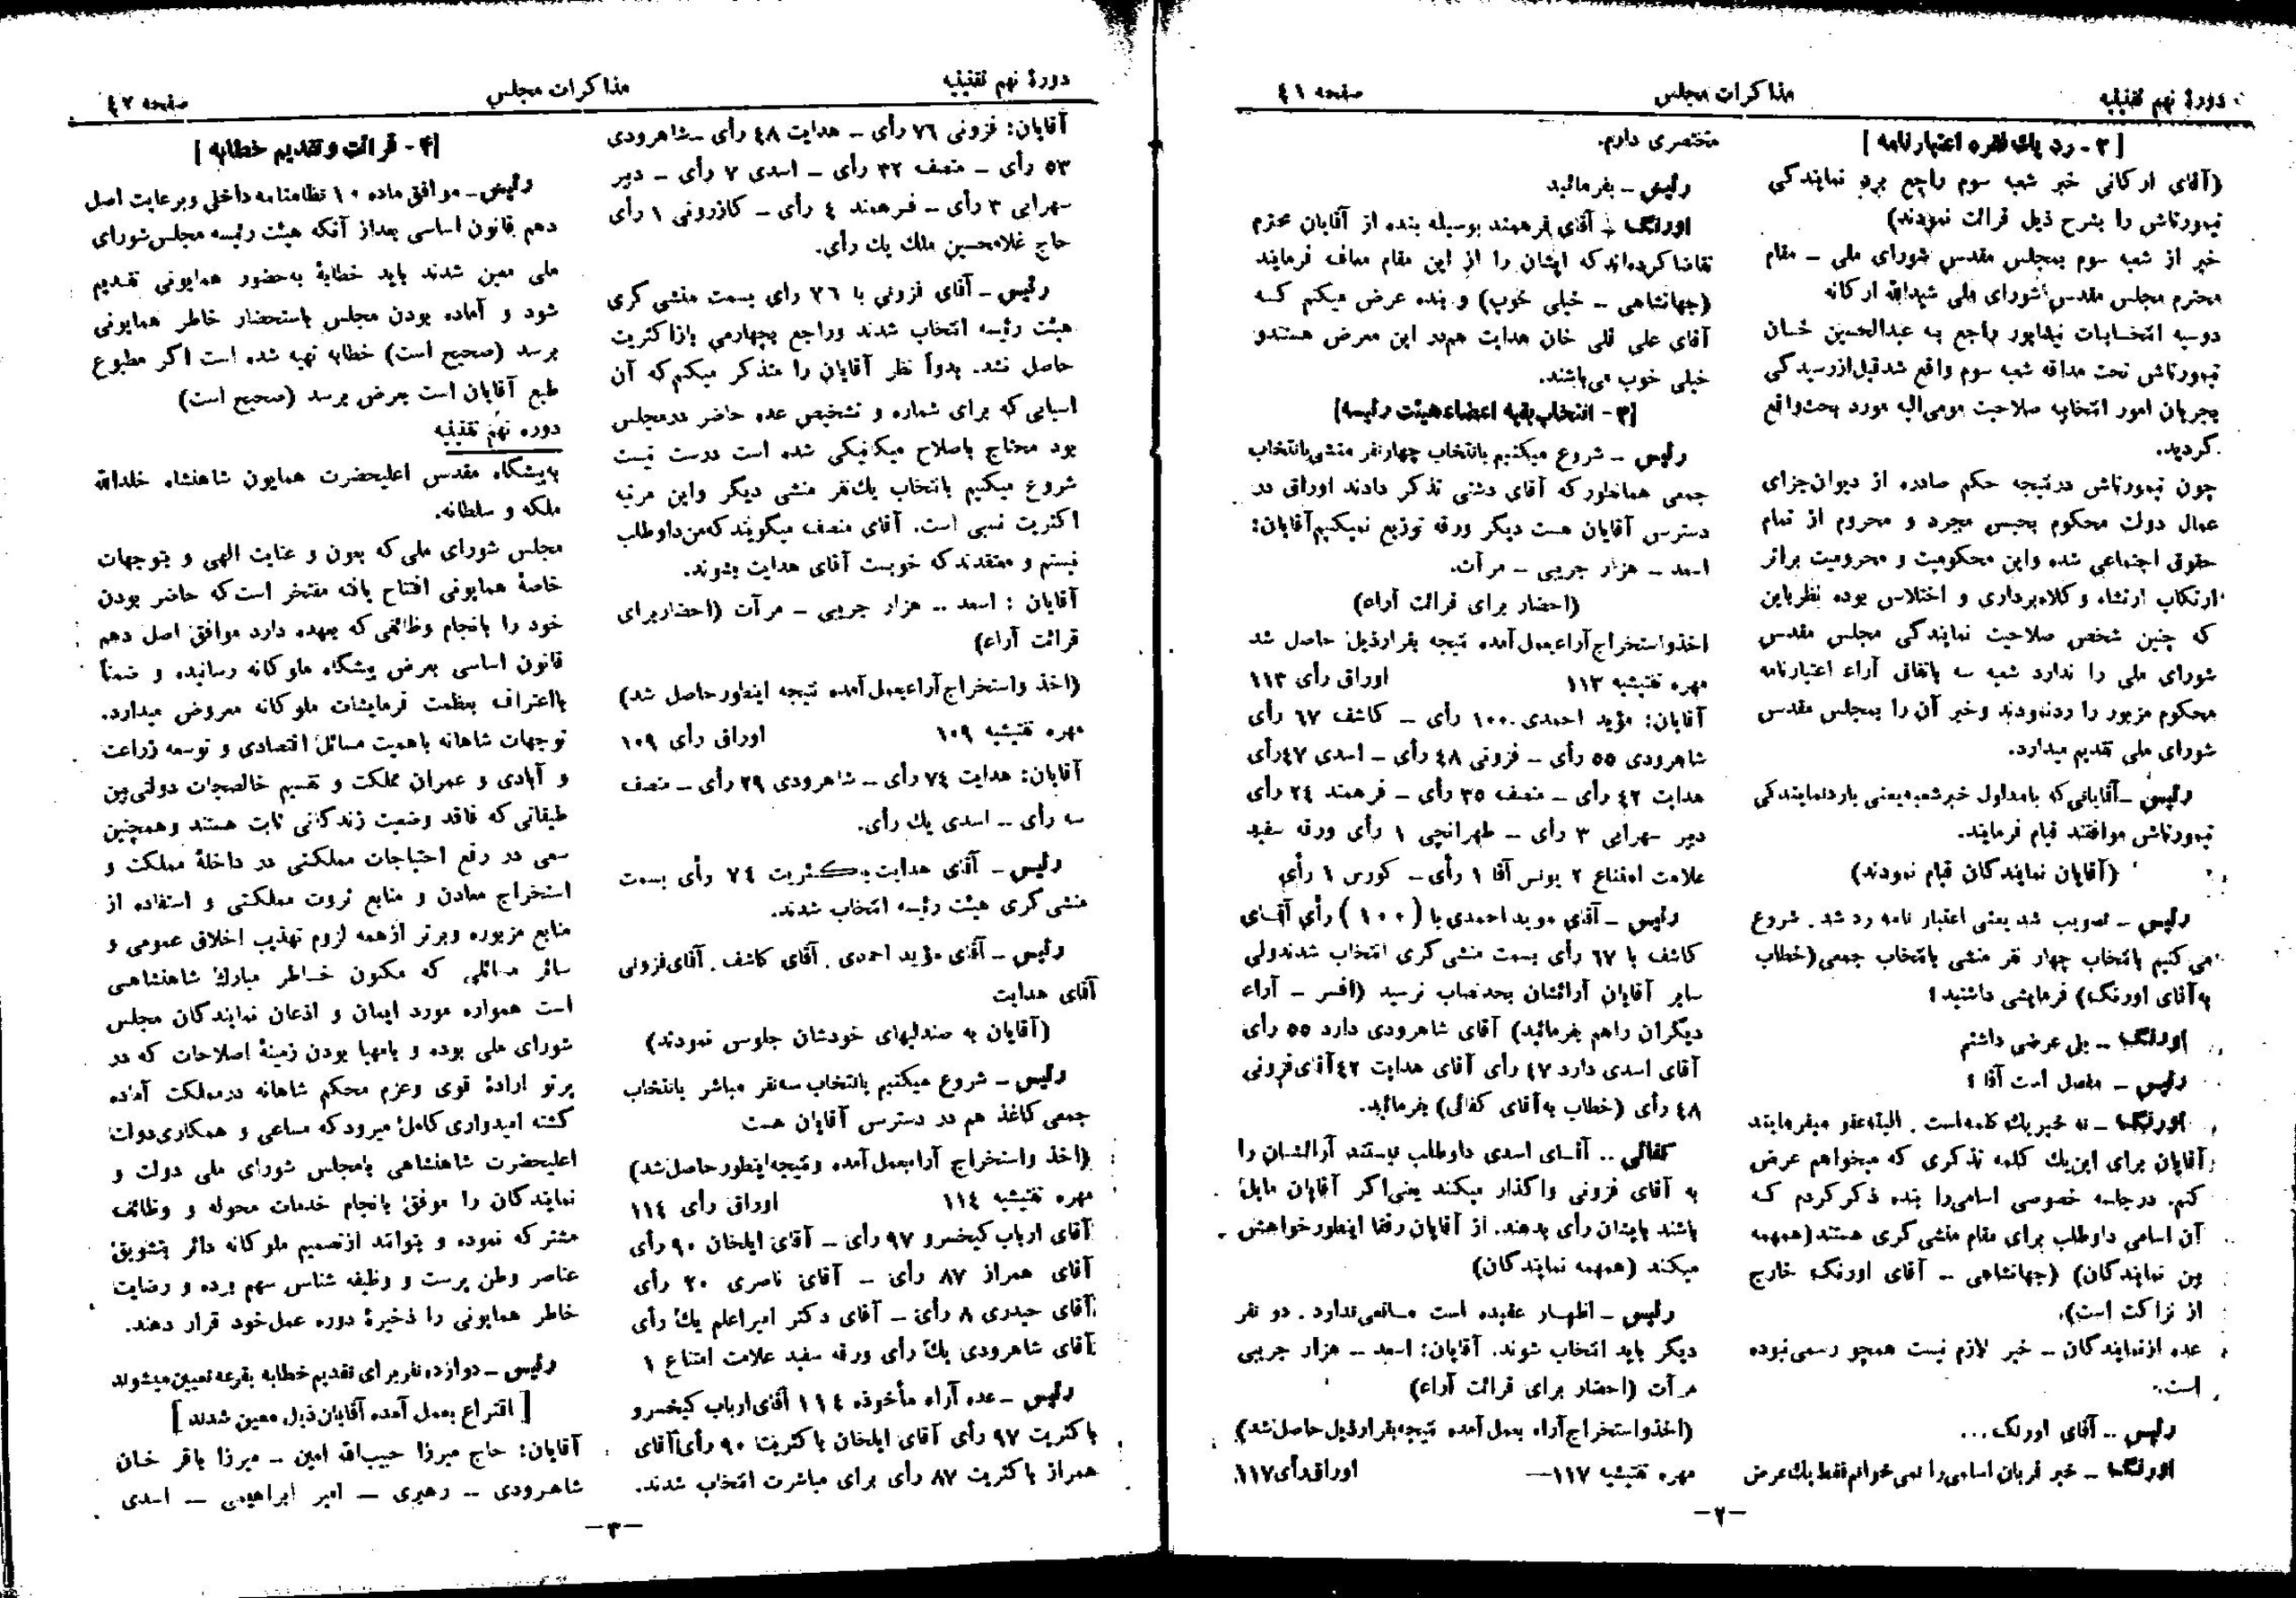 دورهٔ نهم تقنینیه
مذاکرات مجلس
صفحه ٤١
[ ۲ - رد یك فقره اعتبارنامه ]
(آقای ارکانی خبر شعبه سوم راجع برد نمایندگی
تیمورتاش را بشرح ذیل قرائت نمودند)
خبر از شعبه سوم بمجلس مقدس شورای ملی – مقام
محترم مجلس مقدس شورای ملی شیدالله ارکانه
دوسیه انتخابات نیشابور راجع به عبدالحسین خان
تیمورتاش تحت مداقه شعبه سوم واقع شد قبل از رسیدگی
بجریان امور انتخابیه صلاحیت مومی‌الیه مورد بحث واقع
گردید.
چون تیمورتاش در نتیجه حکم صادره از دیوان جزای
عمال دولت محکوم بحبس مجرد و محروم از تمام
حقوق اجتماعی شده و این محکومیت و محرومیت براثر
ارتکاب ارتشاء و کلاه‌برداری و اختلاس بوده نظر باین
که چنین شخص صلاحیت نمایندگی مجلس مقدس
شورای ملی را ندارد شعبه سه باتفاق آراء اعتبارنامه
محکوم مزبور را رد نمودند و خبر آن را بمجلس مقدس
شورای ملی تقدیم میدارد.
رئیس – آقایانی که بامدلول خبر شعبه یعنی بارد نمایندگی
تیمورتاش موافقند قیام فرمایند.
(آقایان نمایندگان قیام نمودند)
رئیس – تصویب شد یعنی اعتبار نامه رد شد . شروع
می کنیم بانتخاب چهار نفر منشی بانتخاب جمعی (خطاب
به آقای اورنگ) فرمایشی داشتید؟
اورنگ – بلی عرضی داشتم
رئیس – مفصل است آقا ؟
اورنگ – نه خیر یك کلمه است . البته عفو میفرمایند
آقایان برای این یك کلمه تذکری که میخواهم عرض
کنم. در جلسه خصوصی اسامی را بنده ذکر کردم که
آن اسامی داوطلب برای مقام منشی گری هستند (همهمه
بین نمایندگان) (جهانشاهی – آقای اورنگ خارج
از نزاکت است).
عده از نمایندگان – خیر لازم نیست همچو رسمی نبوده
است.
رئیس – آقای اورنگ...
اورنگ – خیر قربان اسامی را نمی خوانم فقط یك عرض
مختصری دارم.
رئیس – بفرمائید
اورنگ – آقای فرهمند بوسیله بنده از آقایان محترم
تقاضا کرده‌اند که ایشان را از این مقام معاف فرمایند
(جهانشاهی – خیلی خوب) و بنده عرض میکنم که
آقای علی قلی خان هدایت هم در این معرض هستند و
خیلی خوب می‌باشند.
[۳ - انتخاب بقیه اعضاء هیئت رئیسه]
رئیس – شروع میکنیم بانتخاب چهار نفر منشی بانتخاب
جمعی همانطور که آقای دشتی تذکر دادند اوراق در
دسترس آقایان هست دیگر ورقه توزیع نمیکنیم آقایان:
اسعد – هزار جریبی – مرآت.
(احضار برای قرائت آراء)
اخذ و استخراج آراء بعمل آمده نتیجه بقرار ذیل حاصل شد
مهره تفتیشیه ۱۱۳
اوراق رأی ۱۱۳
آقایان: مؤید احمدی ۱۰۰ رأی – کاشف ٦٧ رأی
شاهرودی ٥٥ رأی – فزونی ٤٨ رأی – اسدی ٤٧ رأی
هدایت ٤٢ رأی – منصف ٣٥ رأی – فرهمند ٢٤ رأی
دبیر سهرابی ۳ رأی – طهرانچی ۱ رأی ورقه سفید
علامت امتناع ۲ یونس آقا ۱ رأی – کورس ۱ رأی
رئیس – آقای موید احمدی با (۱۰۰) رأی آقای
کاشف با ٦٧ رأی بسمت منشی گری انتخاب شدند ولی
سایر آقایان آرائشان بحد نصاب نرسید (افسر – آراء
دیگران را هم بفرمائید) آقای شاهرودی دارد ٥٥ رأی
آقای اسدی دارد ٤٧ رأی آقای هدایت ٤٢ آقای فزونی
٤٨ رأی (خطاب به آقای کفائی) بفرمائید.
کفائی – آقای اسدی داوطلب نیستند آرائشان را
به آقای فزونی واگذار میکند یعنی اگر آقایان مایل
باشند بایشان رأی بدهند. از آقایان رفقا اینطور خواهش
میکند (همهمه نمایندگان)
رئیس – اظهار عقیده است مانعی ندارد . دو نفر
دیگر باید انتخاب شوند. آقایان: اسعد – هزار جریبی
مرآت (احضار برای قرائت آراء)
(اخذ و استخراج آراء بعمل آمده نتیجه بقرار ذیل حاصل شد)
مهره تفتیشیه ۱۱۷–
اوراق رأی ۱۱۷
–۲–
دورهٔ نهم تقنینیه
مذاکرات مجلس
صفحه ٤٢
آقایان: فزونی ٧٦ رأی – هدایت ٤٨ رأی – شاهرودی
٥٣ رأی – منصف ٣٢ رأی – اسدی ٧ رأی – دبیر
سهرابی ۳ رأی – فرهمند ٤ رأی – کازرونی ۱ رأی
حاج غلامحسین ملك یك رأی.
رئیس – آقای فزونی با ٧٦ رای بسمت منشی گری
هیئت رئیسه انتخاب شدند و راجع بچهارمی باز اکثریت
حاصل نشد. بدواً نظر آقایان را متذکر میکنم که آن
اسبابی که برای شماره و تشخیص عده حاضر در مجلس
بود محتاج باصلاح میکانیکی شده است درست نیست
شروع میکنیم بانتخاب یك نفر منشی دیگر و این مرتبه
اکثریت نسبی است. آقای منصف میگویند که من داوطلب
نیستم و معتقدند که خوبست آقای هدایت بشوند.
آقایان : اسعد – هزار جریبی – مرآت (احضار برای
قرائت آراء)
(اخذ و استخراج آراء بعمل آمده نتیجه اینطور حاصل شد)
مهره تفتیشیه ۱۰۹
اوراق رأی ۱۰۹
آقایان: هدایت ٧٤ رأی – شاهرودی ٢٩ رأی – منصف
سه رأی – اسدی یك رأی.
رئیس – آقای هدایت باکثریت ٧٤ رأی بسمت
منشی گری هیئت رئیسه انتخاب شدند.
رئیس – آقای مؤید احمدی . آقای کاشف . آقای فزونی
آقای هدایت
(آقایان به صندلیهای خودشان جلوس نمودند)
رئیس – شروع میکنیم بانتخاب سه نفر مباشر بانتخاب
جمعی کاغذ هم در دسترس آقایان هست
(اخذ و استخراج آراء بعمل آمده و نتیجه اینطور حاصل شد)
مهره تفتیشیه ١١٤
اوراق رأی ١١٤
آقای ارباب کیخسرو ٩٧ رأی – آقای ایلخان ٩٠ رأی
آقای همراز ٨٧ رأی – آقای ناصری ٢٠ رأی
آقای حیدری ٨ رأی – آقای دکتر امیراعلم یك رأی
آقای شاهرودی یك رأی ورقه سفید علامت امتناع ۱
رئیس – عده آراء مأخوذه ١١٤ آقای ارباب کیخسرو
باکثریت ٩٧ رأی آقای ایلخان باکثریت ٩٠ رأی آقای
همراز باکثریت ٨٧ رأی برای مباشرت انتخاب شدند.
[۴ - قرائت و تقدیم خطابه ]
رئیس – موافق ماده ۱۰ نظامنامه داخلی و برعایت اصل
دهم قانون اساسی بعد از آنکه هیئت رئیسه مجلس شورای
ملی معین شدند باید خطابهٔ به حضور همایونی تقدیم
شود و آماده بودن مجلس باستحضار خاطر همایونی
برسد (صحیح است) خطابه تهیه شده است اگر مطبوع
طبع آقایان است بعرض برسد (صحیح است)
دوره نهم تقنینیه
به پیشگاه مقدس اعلیحضرت همایون شاهنشاه خلدالله
ملکه و سلطانه.
مجلس شورای ملی که بعون و عنایت الهی و بتوجهات
خاصهٔ همایونی افتتاح یافته مفتخر است که حاضر بودن
خود را بانجام وظائفی که بعهده دارد موافق اصل دهم
قانون اساسی بعرض پیشگاه ملوکانه رسانیده و ضمناً
بااعتراف بعظمت فرمایشات ملوکانه معروض میدارد.
توجهات شاهانه باهمیت مسائل اقتصادی و توسعه زراعت
و آبادی و عمران مملکت و تقسیم خالصجات دولتی بین
طبقاتی که فاقد وضعیت زندگانی ثابت هستند و همچنین
سعی در رفع احتیاجات مملکتی در داخلهٔ مملکت و
استخراج معادن و منابع ثروت مملکتی و استفاده از
منابع مزبوره و برتر از همه لزوم تهذیب اخلاق عمومی و
سائر مسائلی که مکنون خاطر مبارك شاهنشاهی
است همواره مورد ایمان و اذعان نمایندگان مجلس
شورای ملی بوده و بامهیا بودن زمینهٔ اصلاحات که در
پرتو ارادهٔ قوی و عزم محکم شاهانه در مملکت آماده
گشته امیدواری کامل میرود که مساعی و همکاری دولت
اعلیحضرت شاهنشاهی بامجلس شورای ملی دولت و
نمایندگان را موفق بانجام خدمات محوله و وظائف
مشترکه نموده و بتوانند از تصمیم ملوکانه دائر بتشویق
عناصر وطن پرست و وظیفه شناس سهم برده و رضایت
خاطر همایونی را ذخیرهٔ دوره عمل خود قرار دهند.
رئیس – دوازده نفر برای تقدیم خطابه بقرعه تعیین میشوند
[ اقتراع بعمل آمده آقایان ذیل معین شدند ]
آقایان: حاج میرزا حبیب‌الله امین – میرزا باقر خان
شاهرودی – رهبری – امیر ابراهیمی – اسدی
–۳–